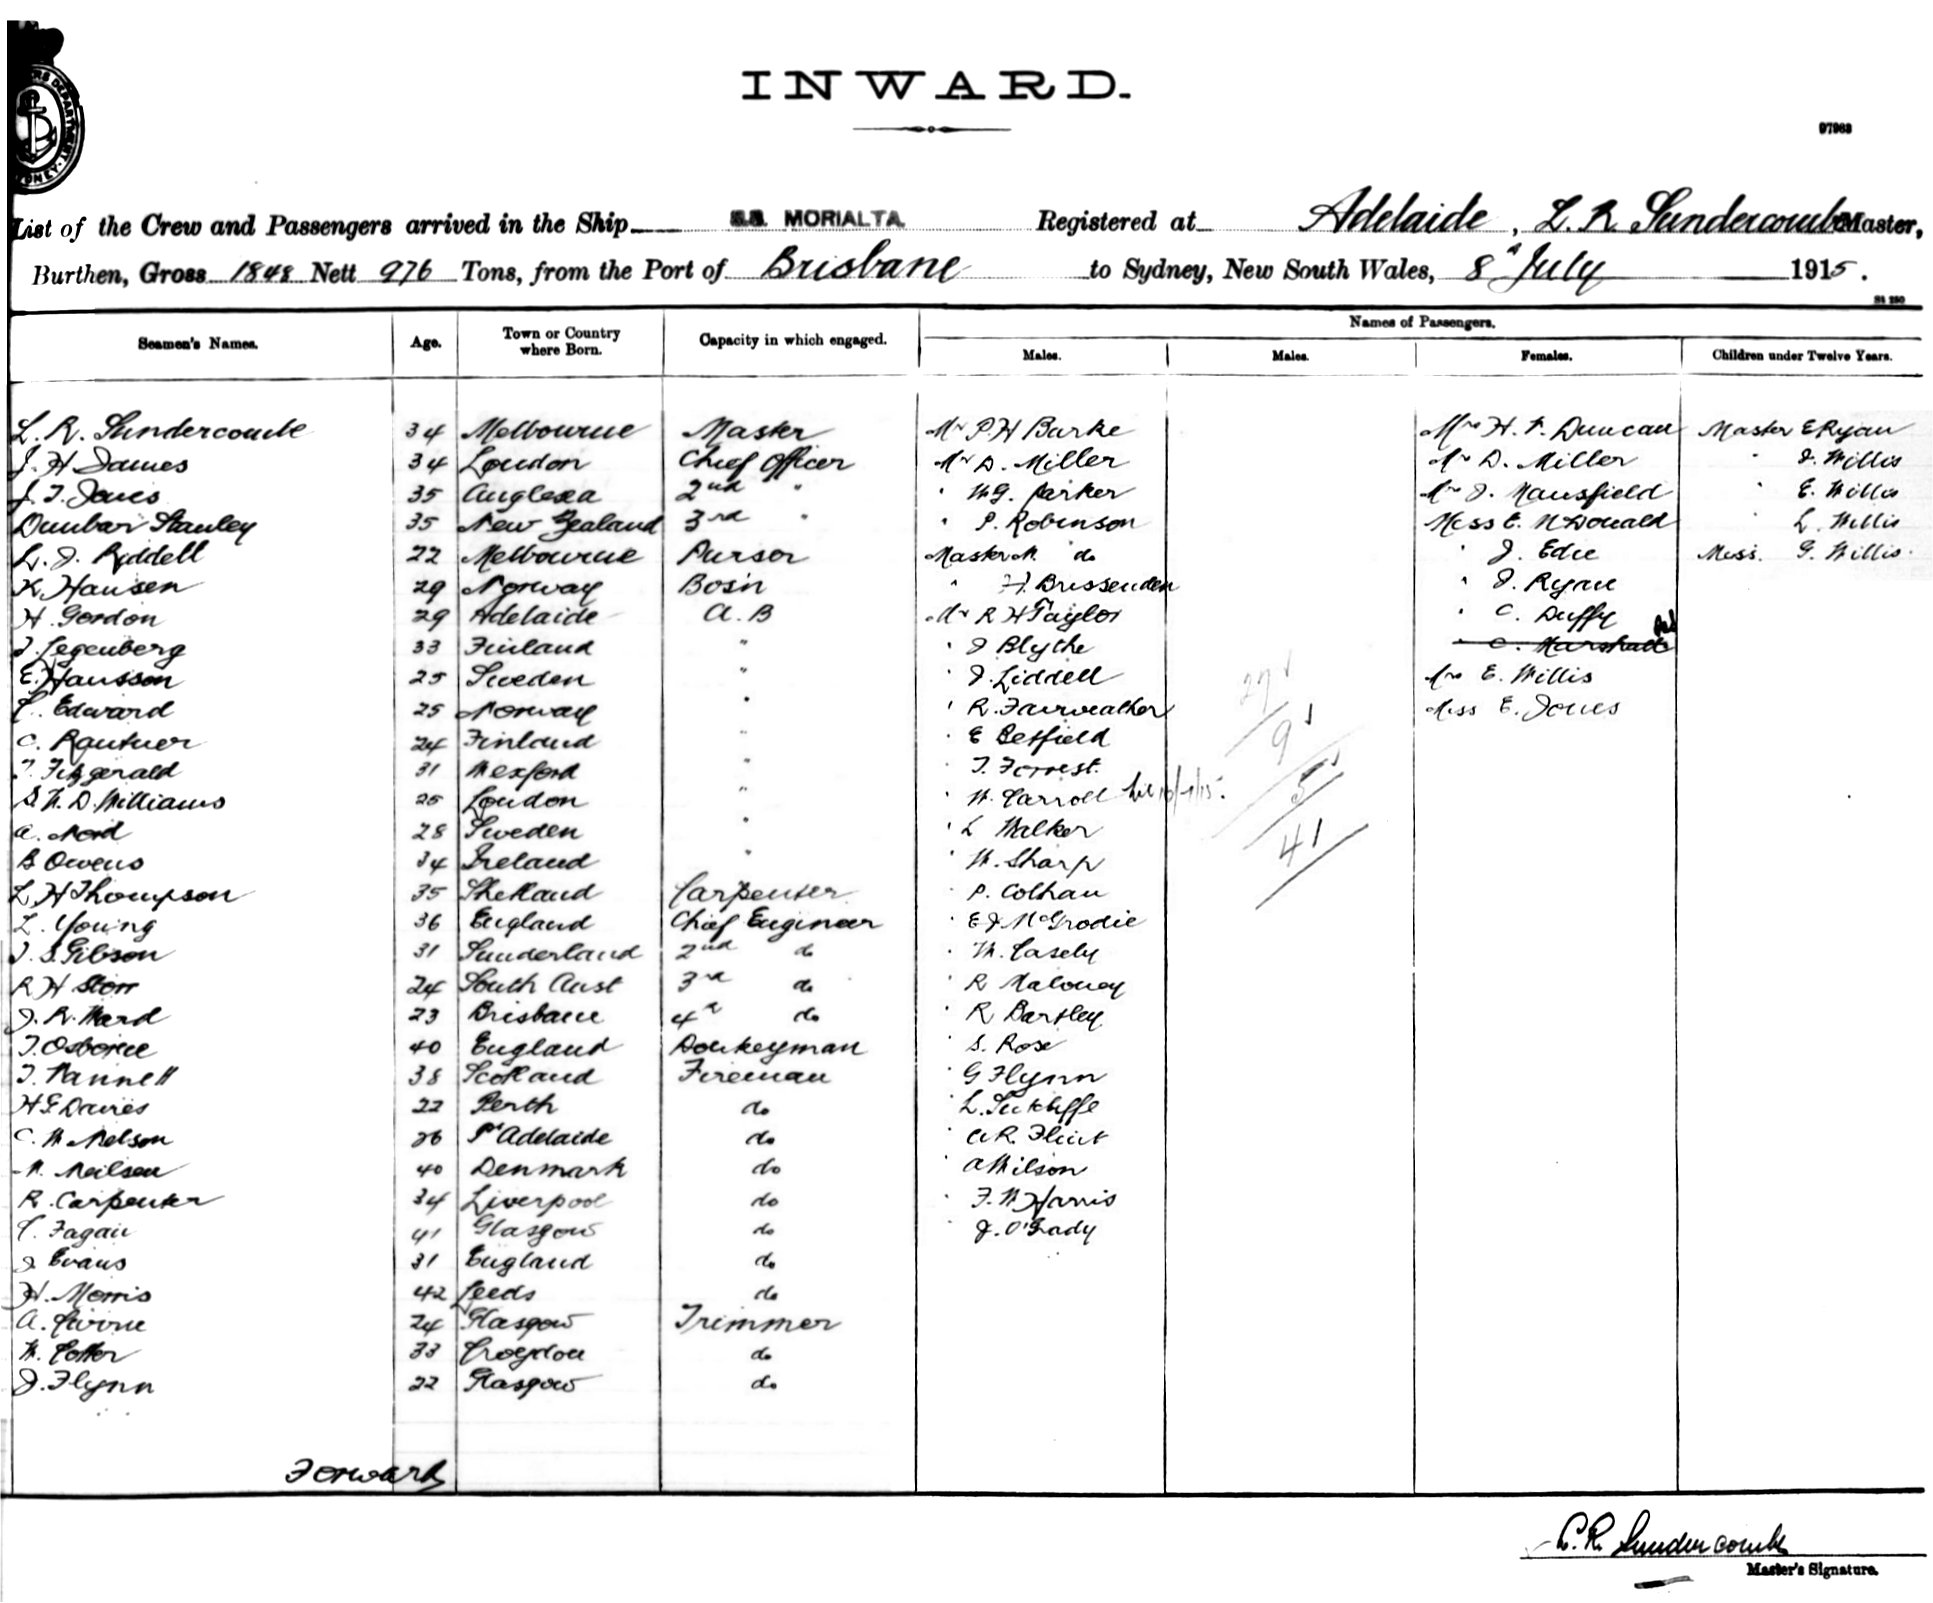 INWARD.
97963
List of the Crew and Passengers arrived in the Ship S.S. MORIALTA Registered at Adelaide, L. R. Sundercombe Master,
Burthen, Gross 1848 Nett 976 Tons, from the Port of Brisbane to Sydney, New South Wales, 8th July 1915.
Seamen's Names. Age. Town or Country where Born. Capacity in which engaged. Names of Passengers.
Males. Males. Females. Children under Twelve Years.
L. R. Sundercombe 34 Melbourne Master Mr P. H Burke Mrs H. F. Duncan Master E Ryan
J. H James 34 London Chief Officer Mr D. Miller Mrs D. Miller " J. Willis
J. T. Jones 35 Anglesea 2nd " " W G. Parker Mrs J. Mansfield " E. Willis
Dunbar Stanley 35 New Zealand 3rd " " P. Robinson Miss E. McDonald " L. Willis
L. J. Riddell 22 Melbourne Purser Master M. do " J. Edie Miss. G. Willis.
K. Hansen 29 Norway Bos'n " H. Brissenden " J. Ryan
H. Gordon 29 Adelaide A. B Mr R H Taylor " C. Duffy
J. Legenberg 33 Finland " " J Blythe " C. Marshall
E. Hansson 25 Sweden " " J. Liddell Mrs E. Willis
C. Edward 25 Norway " " R. Fairweather Miss E. Jones
C. Rautner 24 Finland " " E Betfield
T. Fitzgerald 31 Wexford " " T. Forrest.
S. W. D. Williams 25 London " " W. Carroll
A. Nord 28 Sweden " " L Walker
B Owens 34 Ireland " " W. Sharp
L. H Thompson 35 Shetland Carpenter " P. Colhan
L. Young 36 England Chief Engineer " E J McGrodie
J. S. Gibson 31 Sunderland 2nd do " W. Casely
R H Storr 24 South Aust 3rd do " R Maloney
J. R. Ward 23 Brisbane 4th do " R Bartley
T. Osborne 40 England Donkeyman " S. Rose
T. Pannell 38 Scotland Fireman " G Flynn
H E Davies 22 Perth do " L. Sutcliffe
C. W Nelson 26 Pt Adelaide do " A R. Flint
N. Neilsen 40 Denmark do " A Wilson
R. Carpenter 34 Liverpool do " F. W Harris
C. Fagan 41 Glasgow do " J. O'Grady
J Evans 31 England do
H. Morris 42 Leeds do
A. Currie 24 Glasgow Trimmer
W. Cotter 33 Croydon do
J. Flynn 22 Glasgow do
27
9
5
41
Forward
L. R. Sundercombe
Master's Signature.